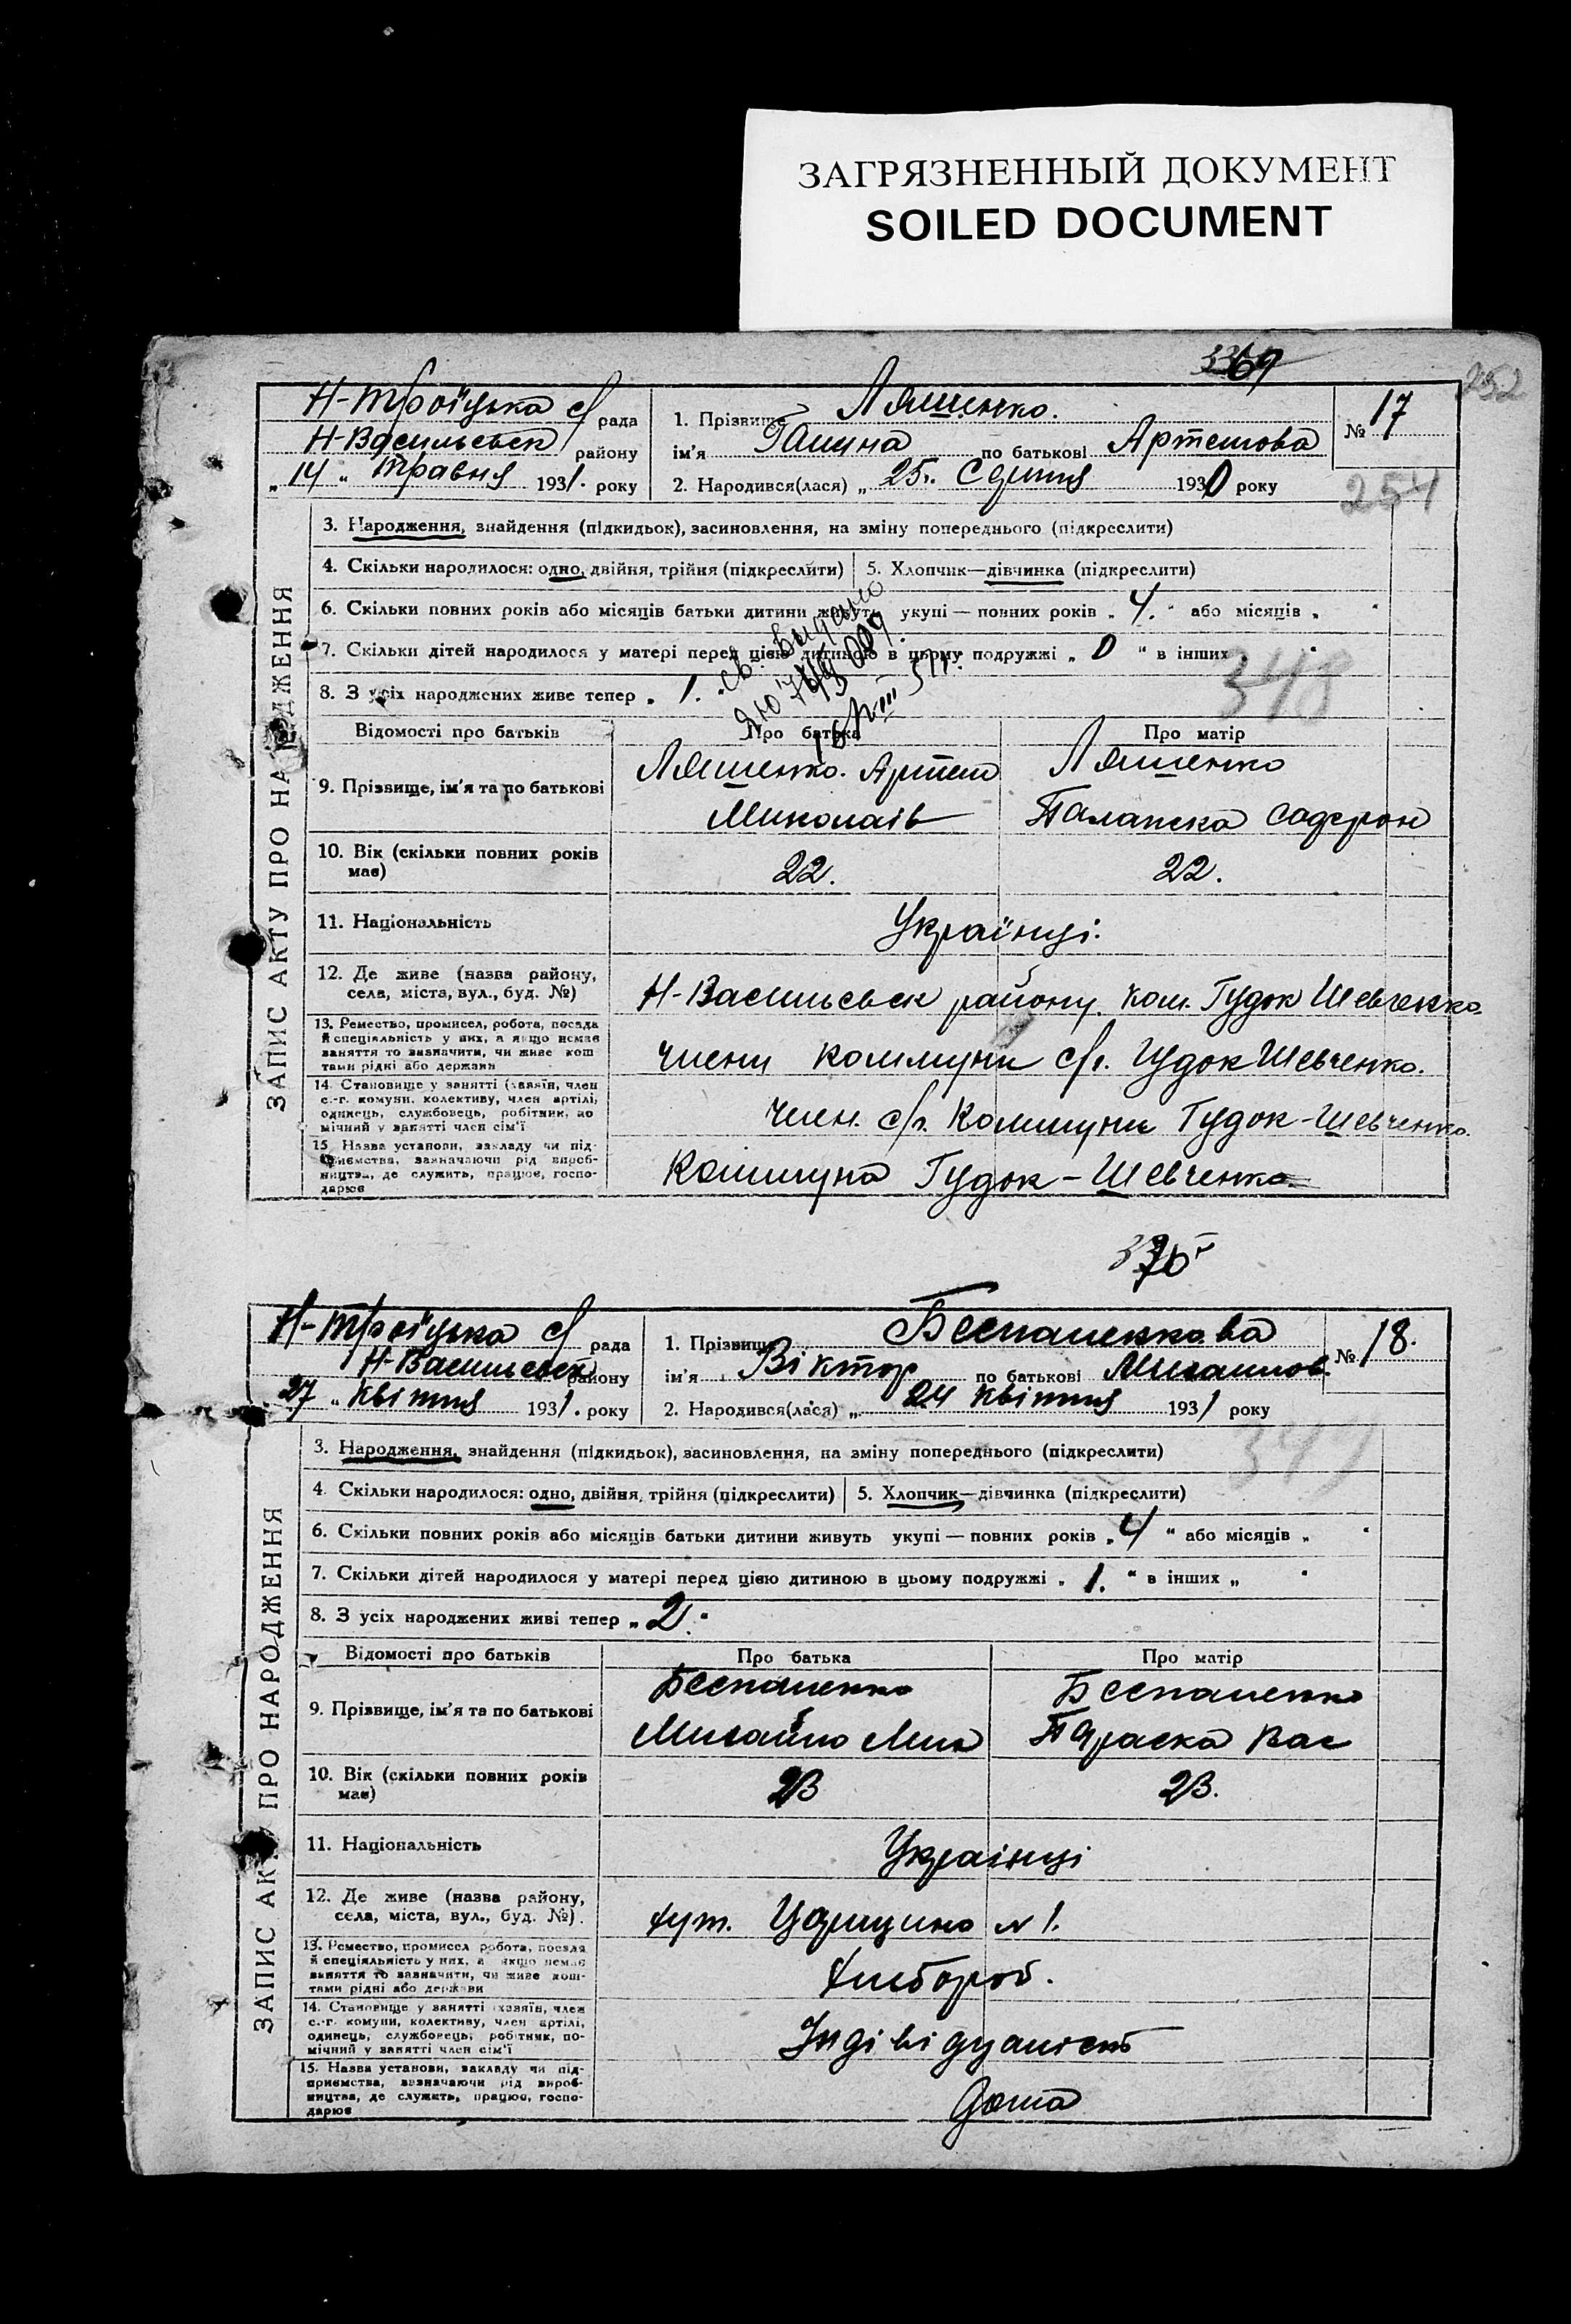 ЗАГРЯЗНЕННЫЙ ДОКУМЕНТ
SOILED DOCUMENT
69
252
Н-Троїцька с/ рада
Н-Васильевск району
„14 “ травня 1931. року
1. Прізвище Ляшенко.
ім'я Галина по батькові Артемова
2. Народився(лася) „ 25. Седнтня 1930 року
№ 17
254
ЗАПИС АКТУ ПРО НАРОДЖЕННЯ
3. Народження, знайдення (підкидьок), засиновлення, на зміну попереднього (підкреслити)
4. Скільки народилося: одно, двійня, трійня (підкреслити) 5. Хлопчик—дівчинка (підкреслити)
6. Скільки повних років або місяців батьки дитини живуть укупі — повних років „ 4. “ або місяців „ “
7. Скільки дітей народилося у матері перед цією дитиною в цьому подружжі „ 0 “ в інших „ “
8. З усіх народжених живе тепер „ 1. “
св. видано
348
Відомості про батьків Про батька Про матір
9. Прізвище, ім'я та по батькові Ляшенко. Артем Ляшенко
Миколаїв Палажка
10. Вік (скільки повних років має) 22. 22.
11. Національність Українці.
12. Де живе (назва району, села, міста, вул., буд. №) Н-Васильевск району. Ком. Гудок Шевченко.
13. Ремество, промисел, робота, посада й спеціяльність у них, а якщо немає заняття то зазначити, чи живе коштами рідні або держави члени коммуни с/г. Гудок Шевченко.
14. Становище у занятті (хазяїн, член с.-г. комуни, колективу, член артілі, одинець, службовець, робітник, помічний у занятті член сім'ї член. с/г. Коммуни Гудок-Шевченко.
15. Назва установи, закладу чи підприємства, зазначаючи рід виробництва, де служить, працює, господарює Коммуна Гудок-Шевченко.
70
Н-Троїцька с/ рада
Н-Васильевск району
27 “ квітня 1931. року
1. Прізвище Беспаленкова
ім'я Віктор по батькові Михайлов.
2. Народився(лася) „ 24 квітня 1931 року
№ 18.
349
ЗАПИС АКТУ ПРО НАРОДЖЕННЯ
3. Народження, знайдення (підкидьок), засиновлення, на зміну попереднього (підкреслити)
4. Скільки народилося: одно, двійня, трійня (підкреслити) 5. Хлопчик—дівчинка (підкреслити)
6. Скільки повних років або місяців батьки дитини живуть укупі — повних років „4 “ або місяців „ “
7. Скільки дітей народилося у матері перед цією дитиною в цьому подружжі „ 1. “ в інших „ “
8. З усіх народжених живі тепер „ 2. “
Відомості про батьків Про батька Про матір
9. Прізвище, ім'я та по батькові Беспаленко Беспаленко
Михайло Мик Параска Вас
10. Вік (скільки повних років має) 23 23.
11. Національність Українці
12. Де живе (назва району, села, міста, вул., буд. №). хут. Царицино № 1.
13. Ремество, промисел робота, посада й спеціяльність у них, а якщо немає заняття то зазначити, чи живе коштами рідні або держави хлібороб.
14. Становище у занятті (хазяїн, член с.-г. комуни, колективу, член артілі, одинець, службовець, робітник, помічний у занятті член сім'ї Індівідуаліст
15. Назва установи, закладу чи підприємства, зазначаючи рід виробництва, де служить, працює, господарює дома